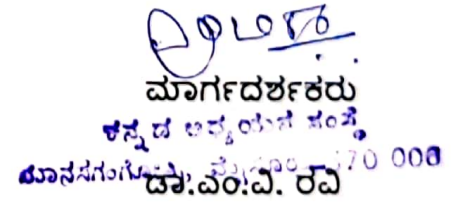 ಮಾರ್ಗದರ್ಶಕರು
ಕನ್ನಡ ಅಧ್ಯಯನ ಸಂಸ್ಥೆ
ಮಾನಸಗಂಗೋತ್ರಿ, ಮೈಸೂರು - 570 006
ಡಾ.ಎಂ.ವಿ. ರವಿ